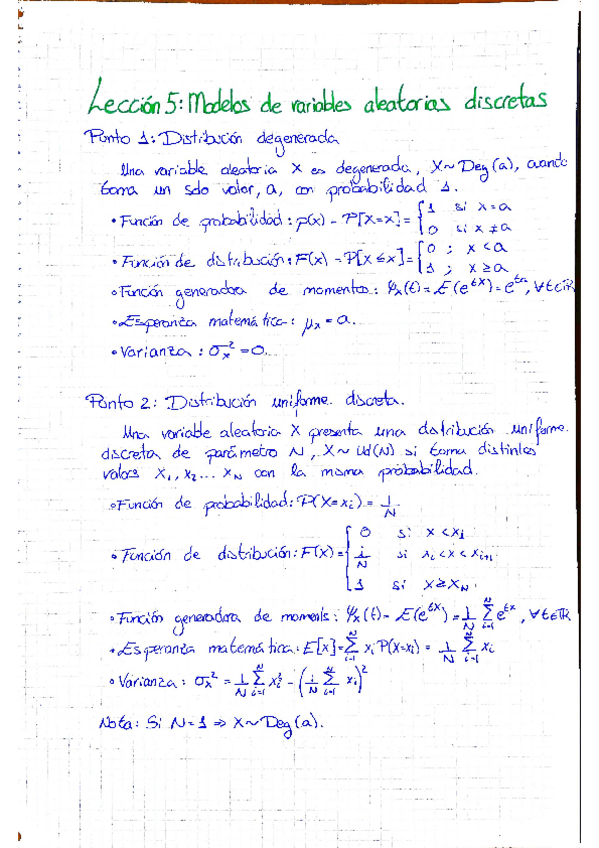 Lección 5: Modelos de variables aleatorias discretas
Punto 1: Distribución degenerada
Una variable aleatoria X es degenerada, X~Deg(a), cuando
toma un solo valor, a, con probabilidad 1.
• Función de probabilidad: p(x) = P[X=x] = { 1 si x=a
0 si x≠a
• Función de distribución: F(x) = P[X≤x] = { 0 ; x<a
1 ; x≥a
• Función generadora de momentos: φx(t) = E(e^tX) = e^ta, ∀t∈ℝ
• Esperanza matemática: μx = a.
• Varianza: σx² = 0.
Punto 2: Distribución uniforme discreta.
Una variable aleatoria X presenta una distribución uniforme
discreta de parámetro N, X~Ud(N) si toma distintos
valores x1, x2 ... xN con la misma probabilidad.
• Función de probabilidad: P(X=xi) = 1/N.
• Función de distribución: F(x) = { 0 si x<x1
i/N si xi<x<xi+1
1 si x≥xN.
• Función generadora de moments: φx(t) = E(e^tX) = 1/N Σ_{i=1}^N e^tx, ∀t∈ℝ
• Esperanza matemática: E[x] = Σ_{i=1}^N xi P(X=xi) = 1/N Σ_{i=1}^N xi
• Varianza: σx² = 1/N Σ_{i=1}^N xi² - (1/N Σ_{i=1}^N xi)²
Nota: Si N=1 ⇒ X~Deg(a).